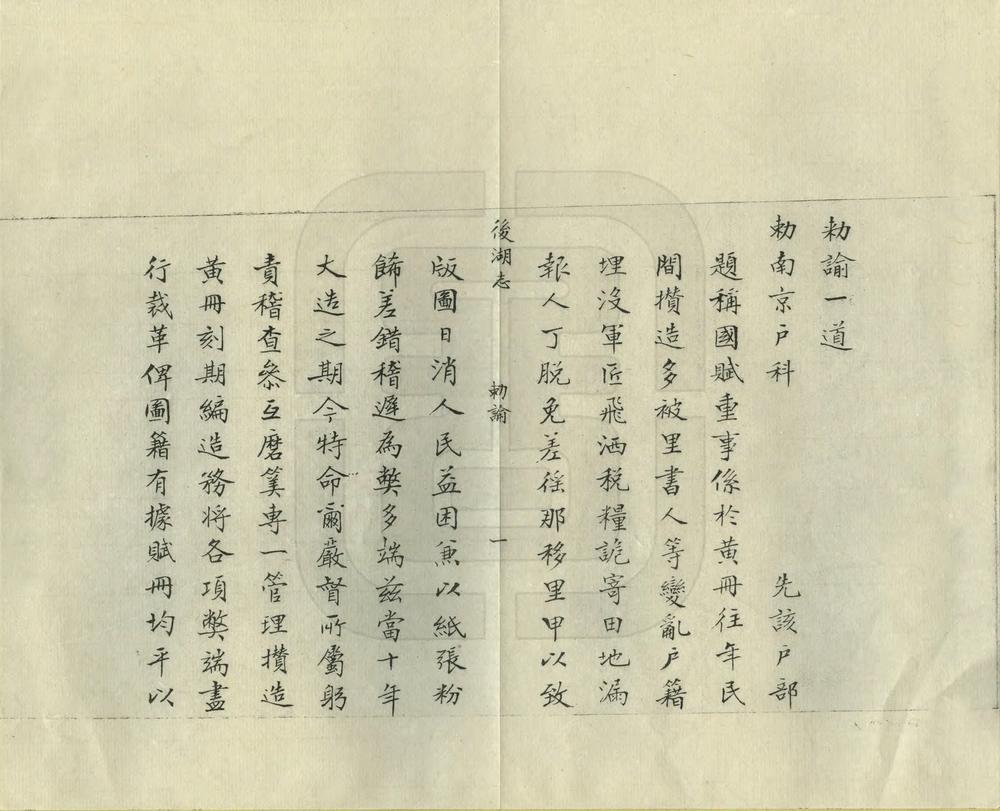 勑諭一道
勑南京戶科　先該戶部
題稱國賦重事係於黃冊往年民
間攅造多被里書人等變亂戶籍
埋没軍匠飛洒稅糧詭寄田地漏
報人丁脱免差徭那移里甲以致
後湖志　勑諭　一
版圖日消人民益困兼以紙張粉
餙差錯稽遲為獘多端兹當十年
大造之期今特命爾嚴督所屬躬
責稽查叅互磨筭專一管理攅造
黃冊刻期編造務將各項獘端盡
行裁革俾圖籍有據賦冊均平以